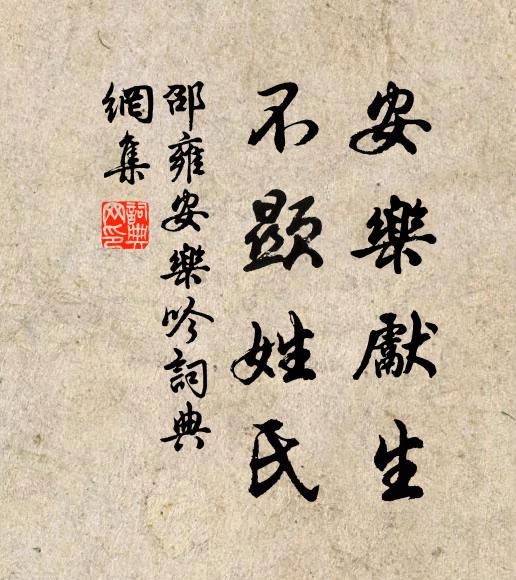 安樂獻生
不顯姓氏
邵雍安樂吟詞典
網集
詞典
网印